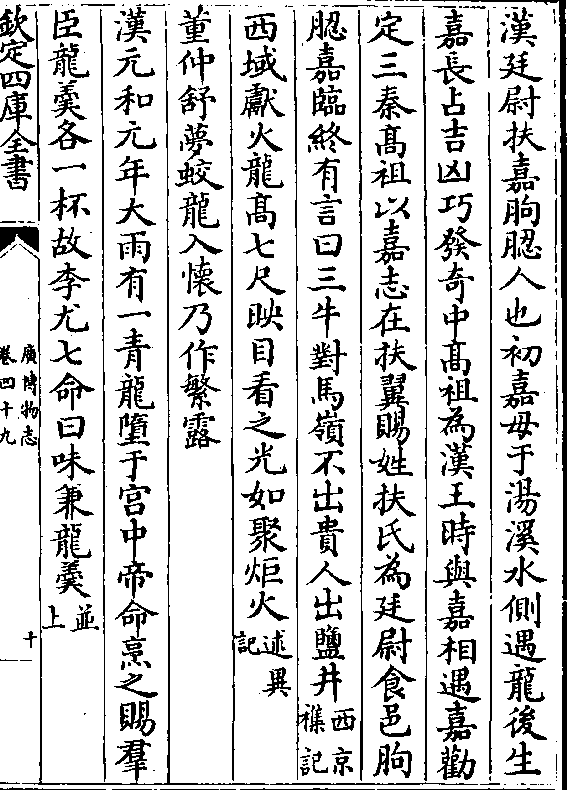 漢廷尉扶嘉朐䏰人也初嘉母于湯溪水側遇龍後生
嘉長占吉凶巧發奇中髙祖為漢王時與嘉相遇嘉勸
定三秦髙祖以嘉志在扶翼賜姓扶氏為廷尉食邑朐
䏰嘉臨終有言曰三牛對馬嶺不出貴人出鹽井西京襍記
西域獻火龍髙七尺映目看之光如聚炬火述異記
董仲舒夢蛟龍入懐乃作繁露
漢元和元年大雨有一青龍墮于宫中帝命烹之賜羣
臣龍羹各一杯故李尤七命曰味兼龍羹並上
欽定四庫全書
廣博物志
卷四十九
十